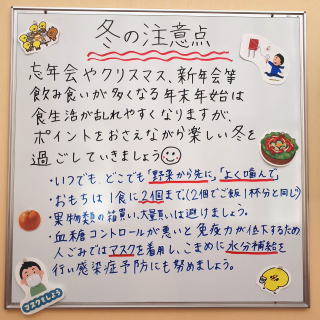 冬の注意点
忘年会やクリスマス、新年会等
飲み食いが多くなる年末年始は
食生活が乱れやすくなりますが、
ポイントをおさえながら楽しい冬を
過ごしていきましょう
・いつでも、どこでも「野菜から先に」「よく噛んで」
・おもちは1食に2個まで。(2個でご飯1杯分と同じ)
・果物類の箱買い、大量買いは避けましょう。
・血糖コントロールが悪いと免疫力が低下するため
人ごみではマスクを着用し、こまめに水分補給を
行い感染症予防にも努めましょう。
マスクをしよう